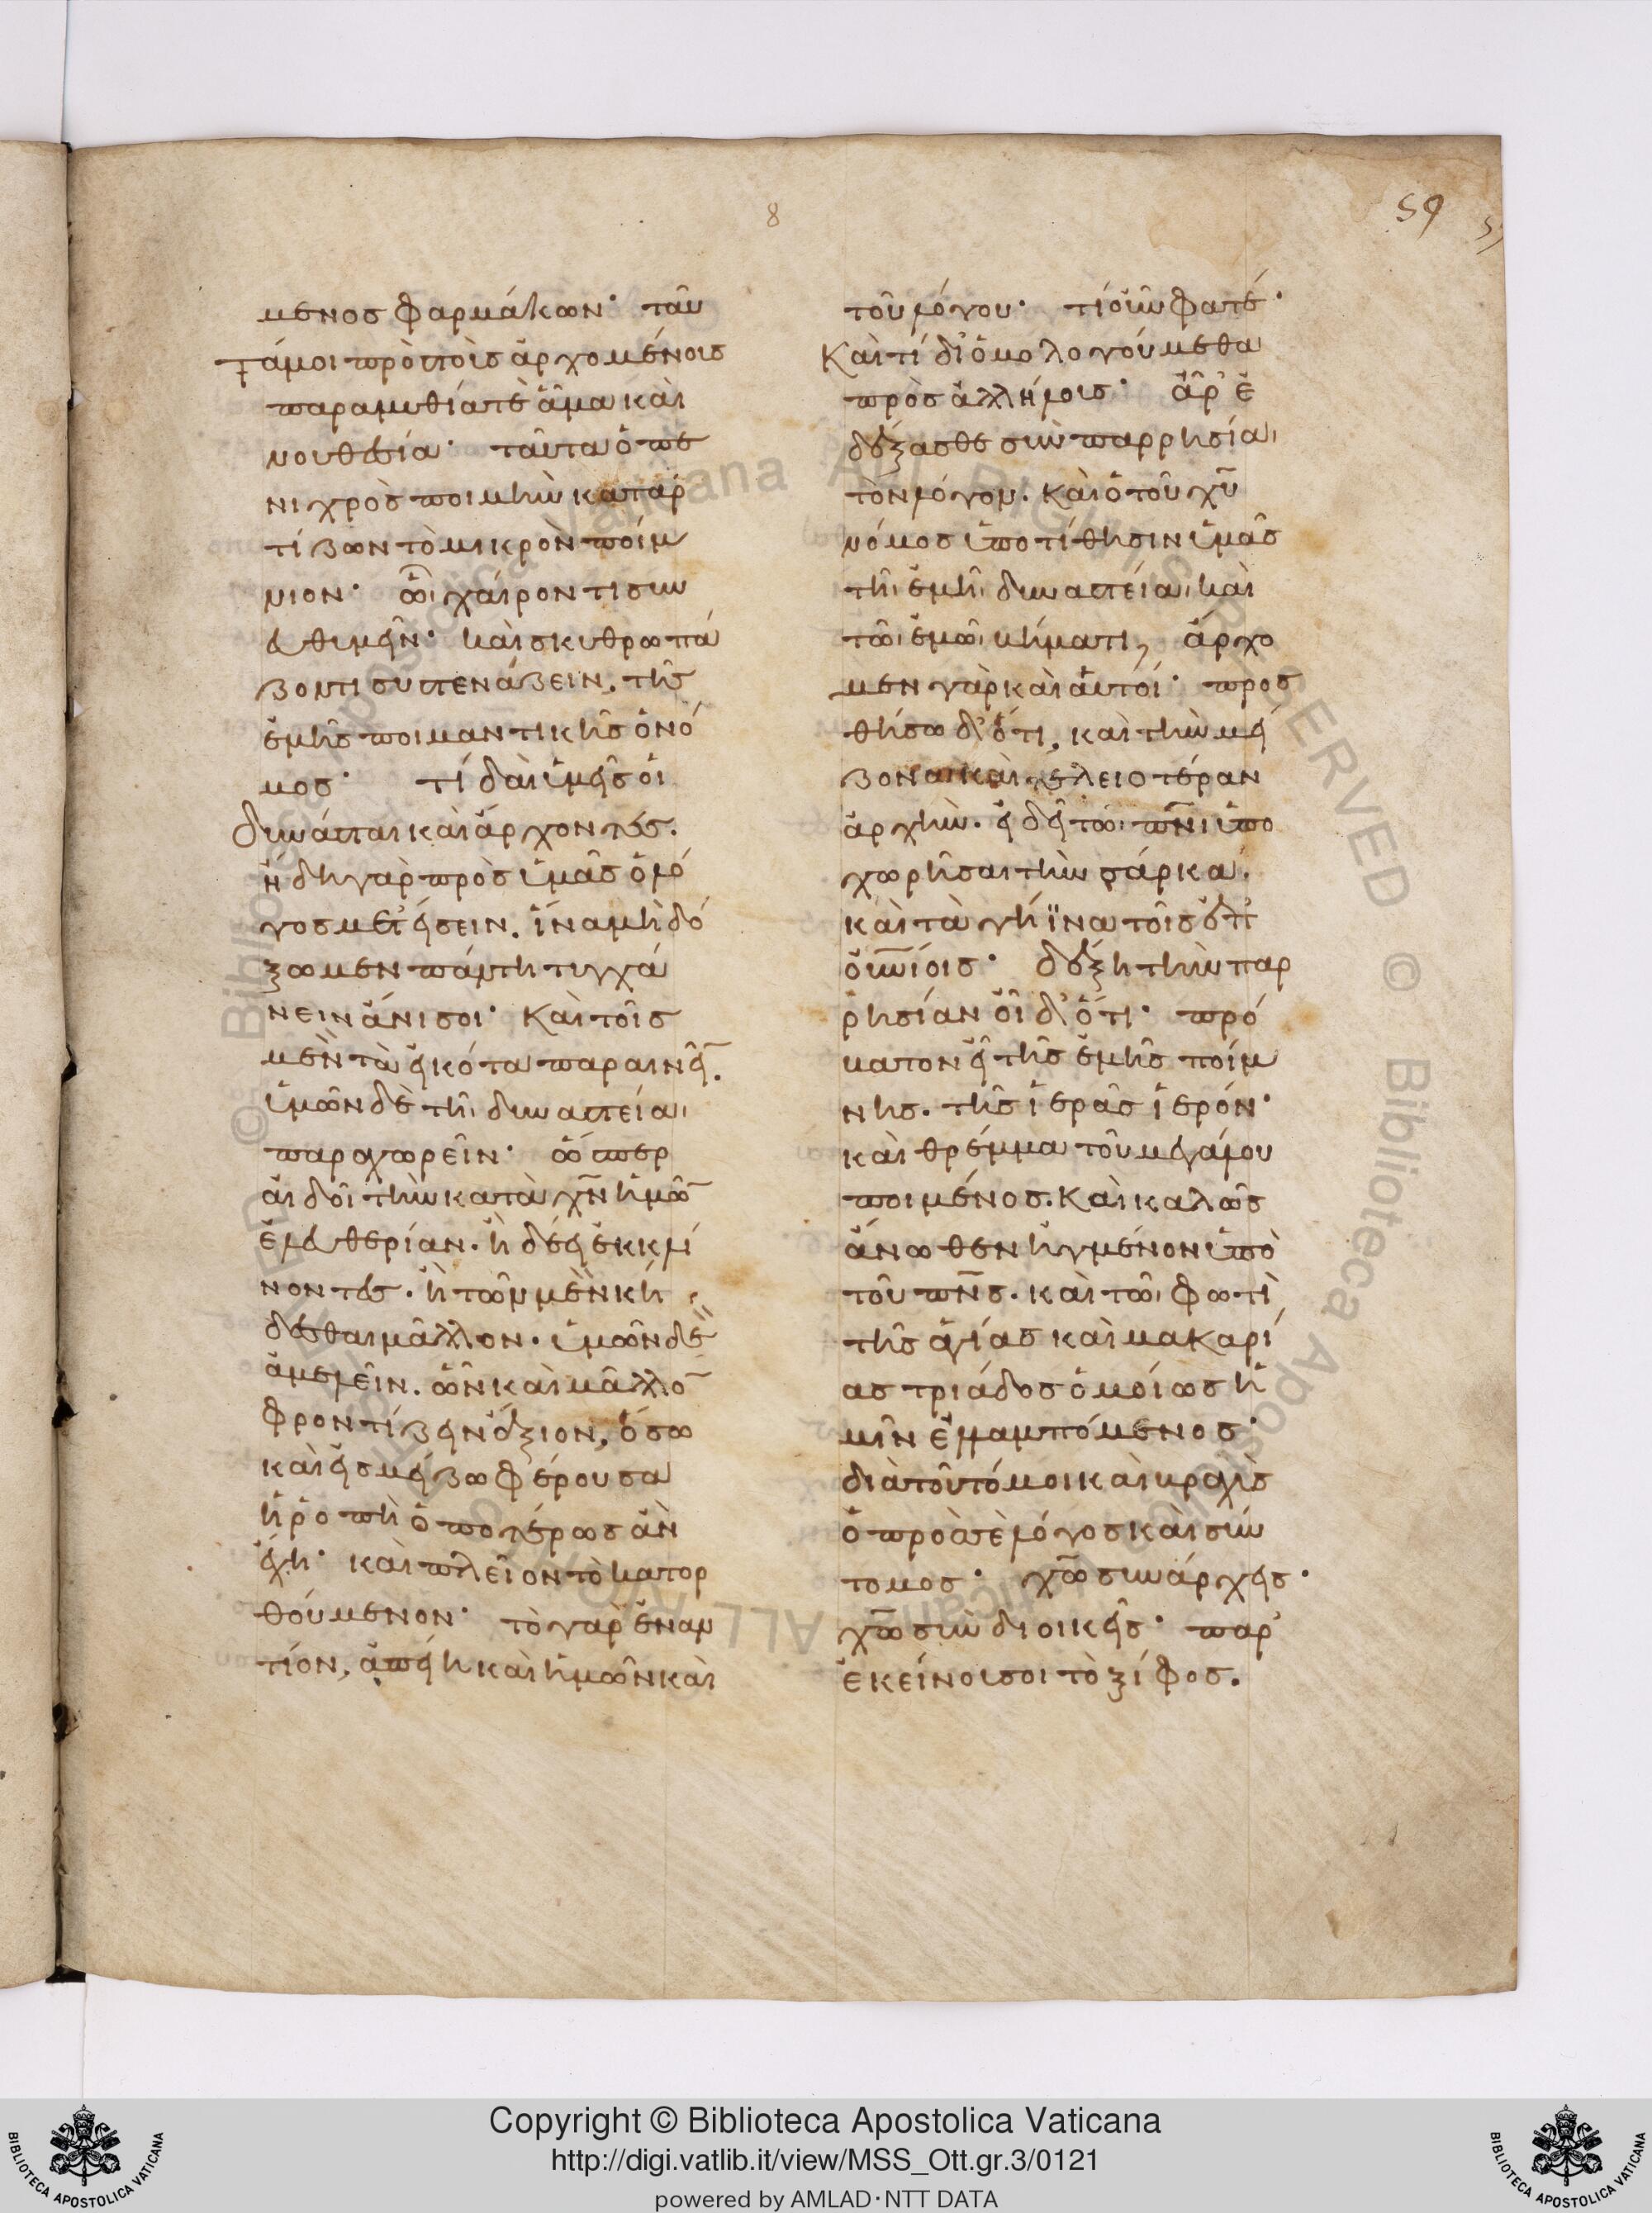 8
59
μενος φαρμάκων· ταῦ
τά μοι πρὸς τοὺς ἀρχομένους
παραμυθία τὲ ἅμα καὶ
νουθεσία· ταῦτα ὁ πε
νιχρὸς ποιμὴν καταρ
τίζων τὸ μικρὸν ποίμ
νιον· ᾧ χαίροντι συν
ευθυμεῖν· καὶ σκυθρωπά
ζοντι συστενάζειν, τῆς
ἐμῆς ποιμαντικῆς ὁ νό
μος· τί δαὶ ὑμεῖς οἱ
δυνάσται καὶ ἄρχοντες.
ἤδη γὰρ πρὸς ὑμᾶς ὁ λό
γος μέτεισιν. ἵνα μὴ δό
ξωμεν πάντη τυγχά
νειν ἄνισοι· καὶ τοῖς
μὲν τὰ εἰκότα παραινεῖ̅.
ὑμῶν δὲ τῆι δυναστείαι
παραχωρεῖν· ὥσπερ
αἰδοῖ τὴν κατὰ χ̅ν̅ ἡμῶ̅
ἐλευθερίαν. ἢ δέει ἐκκλί
νοντες. ἢ τῶν μὲν κή
δεσθαι μᾶλλον. ὑμῶν δὲ
ἀμελεῖν. ὧν καὶ μᾶλλο̅
φροντίζειν ἄξιον, ὅσω
καὶ εἰς μείζω φέρουσα
ἡ ῥοπὴ ὁποτέρως ἂν
ἔχη· καὶ πλεῖον τὸ κατορ
θούμενον· τὸ γὰρ ἐναν
τίον, ἀπείη καὶ ἡμῶν καὶ
τοῦ λόγου· τί οὖν φατέ·
καὶ τί διομολογούμεθα
πρὸς ἀλλήλους· ἆρ' ἐ
δέξασθε σὺν παρρησίαι
τὸν λόγον. καὶ ὁ τοῦ χ̅υ̅
νόμος ὑποτίθησιν ὑμᾶς
τῆι ἐμῆι δυναστείαι καὶ
τῶι ἐμῶι βήματι, ἄρχο
μεν γὰρ καὶ αὐτοί· προσ
θήσω δ' ὅτι, καὶ τὴν μεί
ζονα καὶ τελειοτέραν
ἀρχήν. εἰ δεῖ τῶι π̅ν̅ι ὑπο
χωρῆσαι τὴν σάρκα.
καὶ τὰ γήϊνα τοῖς ἐπ
ου̅ν̅ίοις· δέξη τὴν παρ
ρησίαν οἶδ' ὅτι· πρό
βατον εἶ τῆς ἐμῆς ποίμ
νης. τῆς ἱερᾶς ἱερόν·
καὶ θρέμμα τοῦ μεγάλου
ποιμένος. καὶ καλῶς
ἄνωθεν ἠγμένον ὑπὸ
τοῦ π̅ν̅ς. καὶ τῶι φωτὶ
τῆς ἁγίας καὶ μακαρί
ας τριάδος ὁμοίως ἡ
μῖν ἐλλαμπόμενος·
διὰ τοῦτό μοι καὶ βραχὺς
ὁ πρὸς σὲ λόγος καὶ σύν
τομος· χ̅ω̅ συνάρχεις·
χ̅ω̅ συνδιοικεῖς· παρ'
ἐκείνου σοι τὸ ξίφος.
Copyright © Biblioteca Apostolica Vaticana
http://digi.vatlib.it/view/MSS_Ott.gr.3/0121
powered by AMLAD·NTT DATA